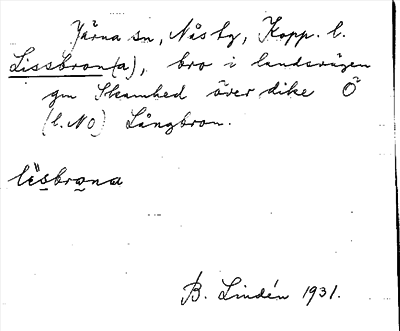 Järna sn, Nås hg, Kopp. l.
Lissbron(a), bro i landsvägen
gm Skamhed över dike Ö
(l. NO) Långbron.
B. Lindén 1931.